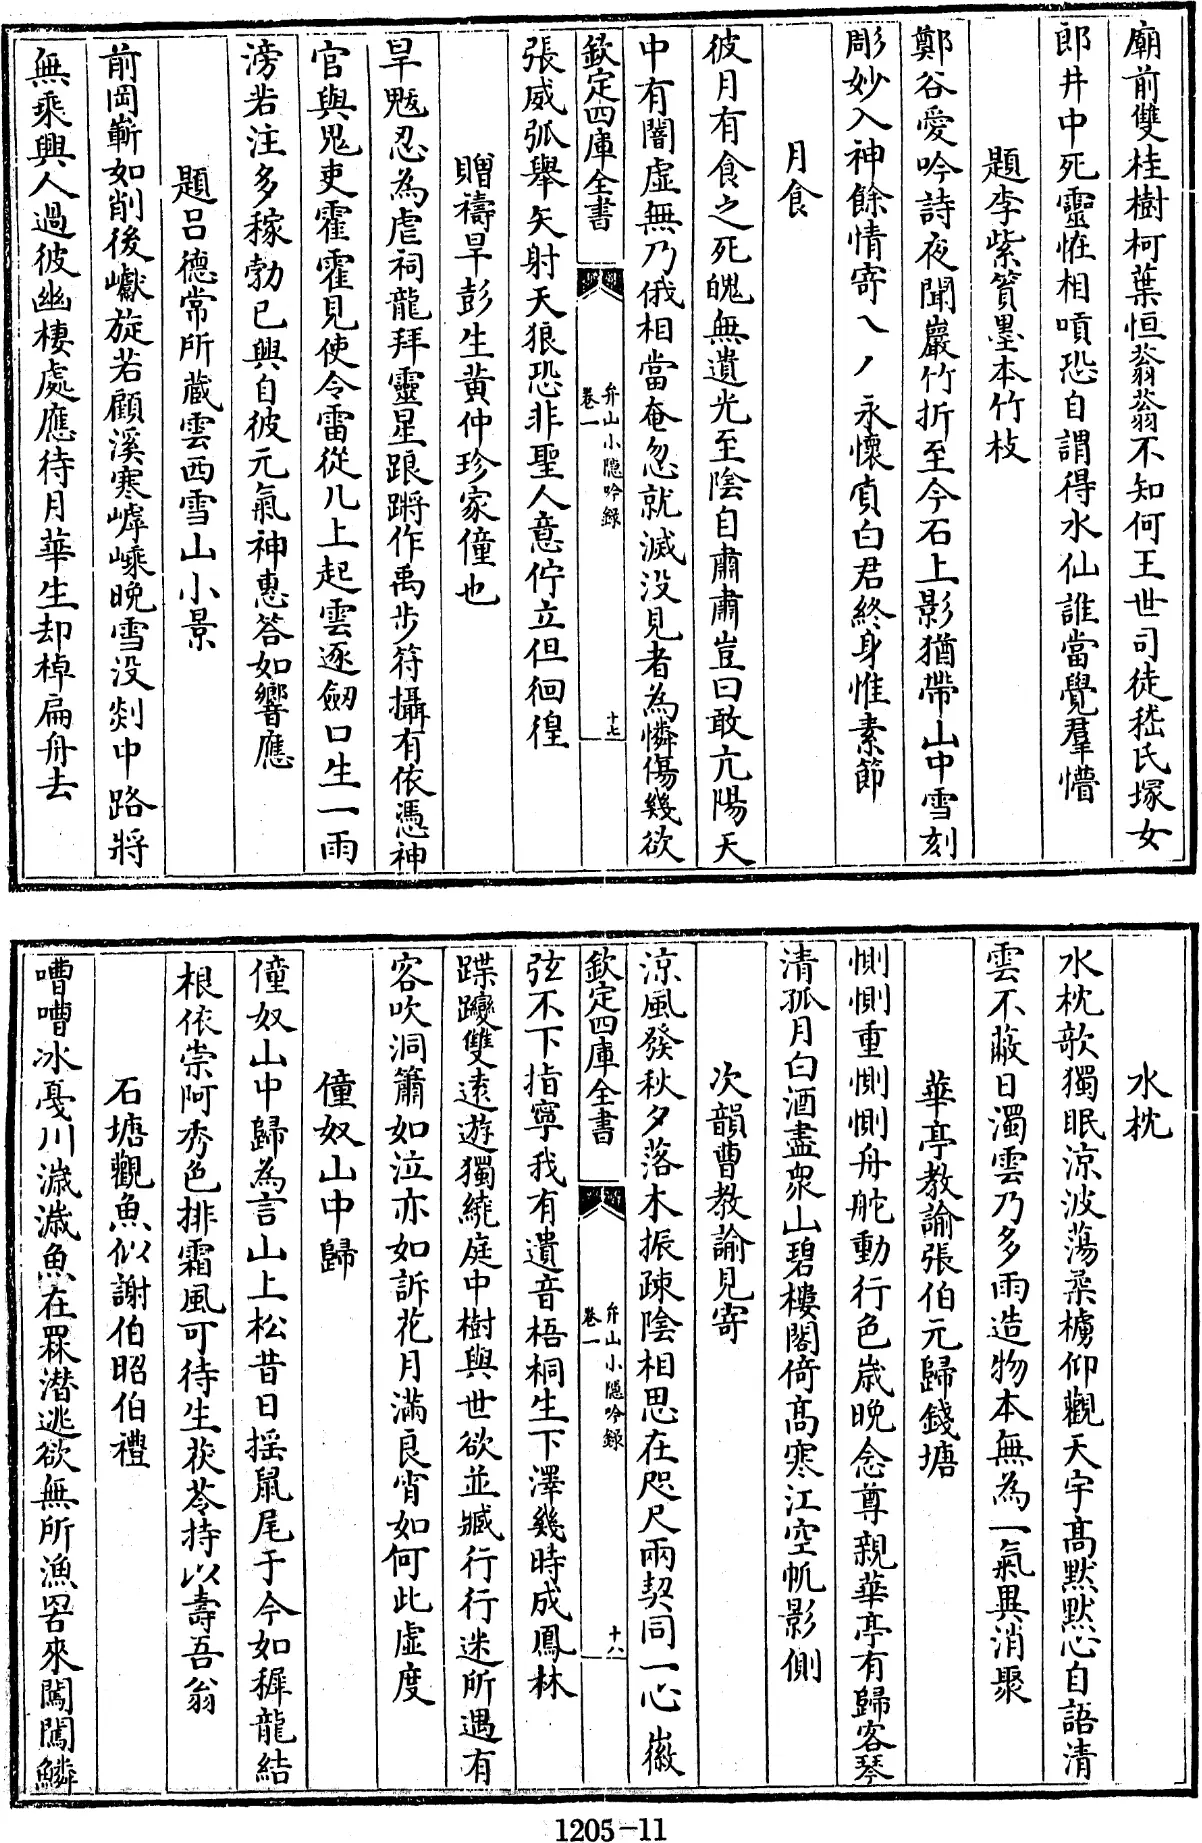 廟前雙桂樹柯葉恒蓊蓊不知何王世司徒嵇氏塚女
郎井中死靈恠相嘖恐自謂得水仙誰當覺羣懵
題李紫篔墨本竹枝
鄭谷愛吟詩夜聞巖竹折至今石上影猶帶山中雪刻
彫妙入神餘情寄乀丿永懷貞白君終身惟素節
月食
彼月有食之死魄無遺光至陰自肅肅豈曰敢亢陽天
中有闇虛無乃俄相當奄忽就滅没見者為憐傷幾欲
欽定四庫全書
弁山小隱吟録
卷一
十七
張威弧舉矢射天狼恐非聖人意佇立但徊徨
贈禱旱彭生黄仲珍家僮也
旱魃忍為虐祠龍拜靈星踉蹡作禹步符攝有依憑神
官與鬼吏霍霍見使令雷從几上起雲逐劒口生一雨
滂若注多稼勃已興自彼元氣神惠答如響應
題吕德常所藏雲西雪山小景
前岡嶄如削後巘旋若顧溪寒嶂嵊晚雪没剡中路將
無乘興人過彼幽棲處應待月華生却棹扁舟去
水枕
水枕欹獨眠凉波蕩柔櫓仰觀天宇高默默心自語清
雲不蔽日濁雲乃多雨造物本無為一氣異消聚
華亭教諭張伯元歸錢塘
惻惻重惻惻舟舵動行色歳晩念尊親華亭有歸客琴
清孤月白酒盡衆山碧樓閣倚高寒江空帆影側
次韻曹教諭見寄
涼風發秋夕落木振疎陰相思在咫尺兩契同一心徽
欽定四庫全書
弁山小隱吟録
卷一
十八
弦不下指寧我有遺音梧桐生下澤幾時成鳳林
蹀躞雙逺遊獨繞庭中樹與世欲並臧行行迷所遇有
客吹洞簫如泣亦如訴花月滿良宵如何此虚度
僮奴山中歸
僮奴山中歸為言山上松昔日摇鼠尾于今如穉龍結
根依崇阿秀色排霜風可待生茯苓持以壽吾翁
石塘觀魚似謝伯昭伯禮
嘈嘈冰戞川濊濊魚在罧潛逃欲無所漁罟來闖闖鱗
1205-11